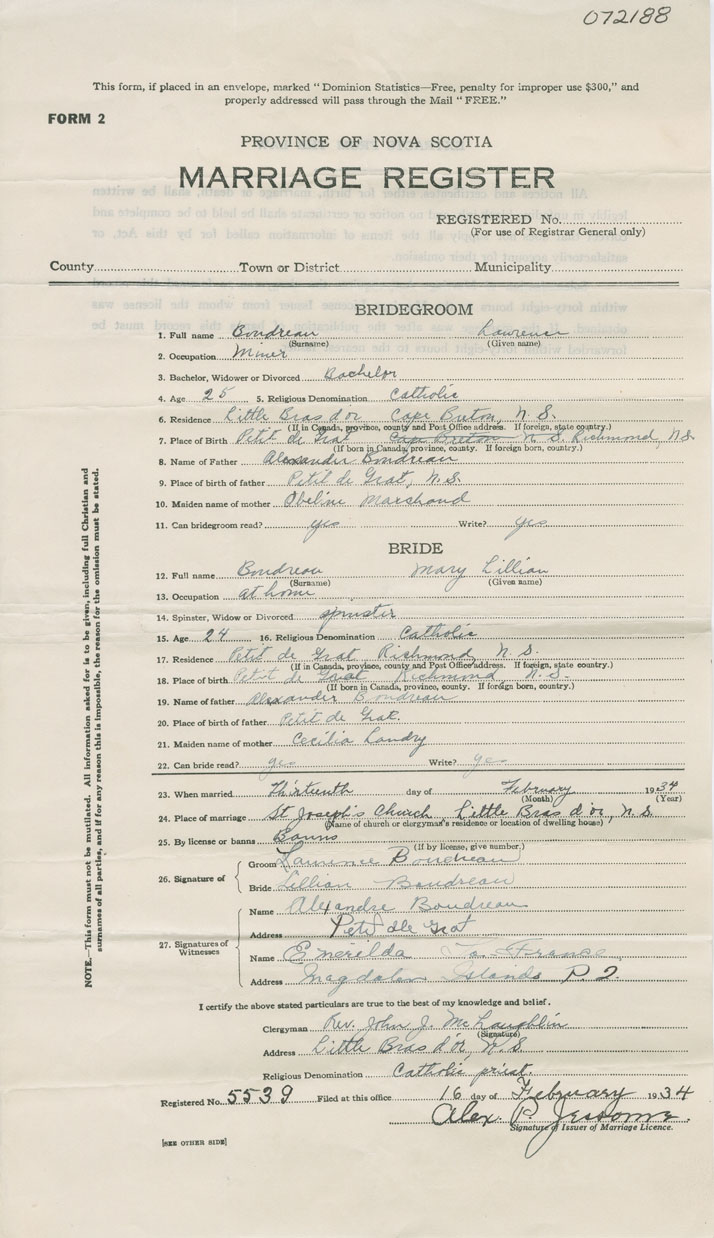 072188
This form, if placed in an envelope, marked "Dominion Statistics—Free, penalty for improper use $300," and
properly addressed will pass through the Mail "FREE."
FORM 2
PROVINCE OF NOVA SCOTIA
MARRIAGE REGISTER
REGISTERED No.
(For use of Registrar General only)
County Town or District Municipality
BRIDEGROOM
1. Full name Boudreau Lawrence
(Surname) (Given name)
2. Occupation Miner
3. Bachelor, Widower or Divorced Bachelor
4. Age 25 5. Religious Denomination Catholic
6. Residence Little Bras d'or Cape Breton, N. S.
(If in Canada, province, county and Post Office address. If foreign, state country.)
7. Place of Birth Petit de Grat Cape Breton N. S. Richmond, N.S.
(If born in Canada, province, county. If foreign born, country.)
8. Name of Father Alexander Boudreau
9. Place of birth of father Petit de Grat, N.S.
10. Maiden name of mother Obeline Marshand
11. Can bridegroom read? yes Write? yes
BRIDE
12. Full name Boudreau Mary Lillian
(Surname) (Given name)
13. Occupation at home
14. Spinster, Widow or Divorced spinster
15. Age 24 16. Religious Denomination Catholic
17. Residence Petit de Grat, Richmond, N. S.
(If in Canada, province, county and Post Office address. If foreign, state country.)
18. Place of birth Petit de Grat Richmond N. S.
(If born in Canada, province, county. If foreign born, country.)
19. Name of father Alexander Boudreau
20. Place of birth of father Petit de Grat.
21. Maiden name of mother Cecilia Landry
22. Can bride read? yes Write? yes
23. When married thirteenth day of February 1934
(Month) (Year)
24. Place of marriage St Joseph's Church, Little Bras d'or, N.S.
(Name of church or clergyman's residence or location of dwelling house)
25. By license or banns Banns
(If by license, give number.)
26. Signature of
Groom Laurence Boudreau
Bride Lillian Boudreau
27. Signatures of
Witnesses
Name Alexandre Boudreau
Address Petit de Grat
Name Emerilda La France
Address Magdalen Islands P. Q.
I certify the above stated particulars are true to the best of my knowledge and belief.
Clergyman Rev. John J. McLaughlin
(Signature)
Address Little Bras d'or, N.S.
Religious Denomination Catholic priest.
Registered No. 5539 Filed at this office 16 day of February 1934
Alex. P. Jessome.
Signature of Issuer of Marriage Licence.
[SEE OTHER SIDE]
NOTE.—This form must not be mutilated. All information asked for is to be given, including full Christian and
surnames of all parties, and if for any reason this is impossible, the reason for the omission must be stated.